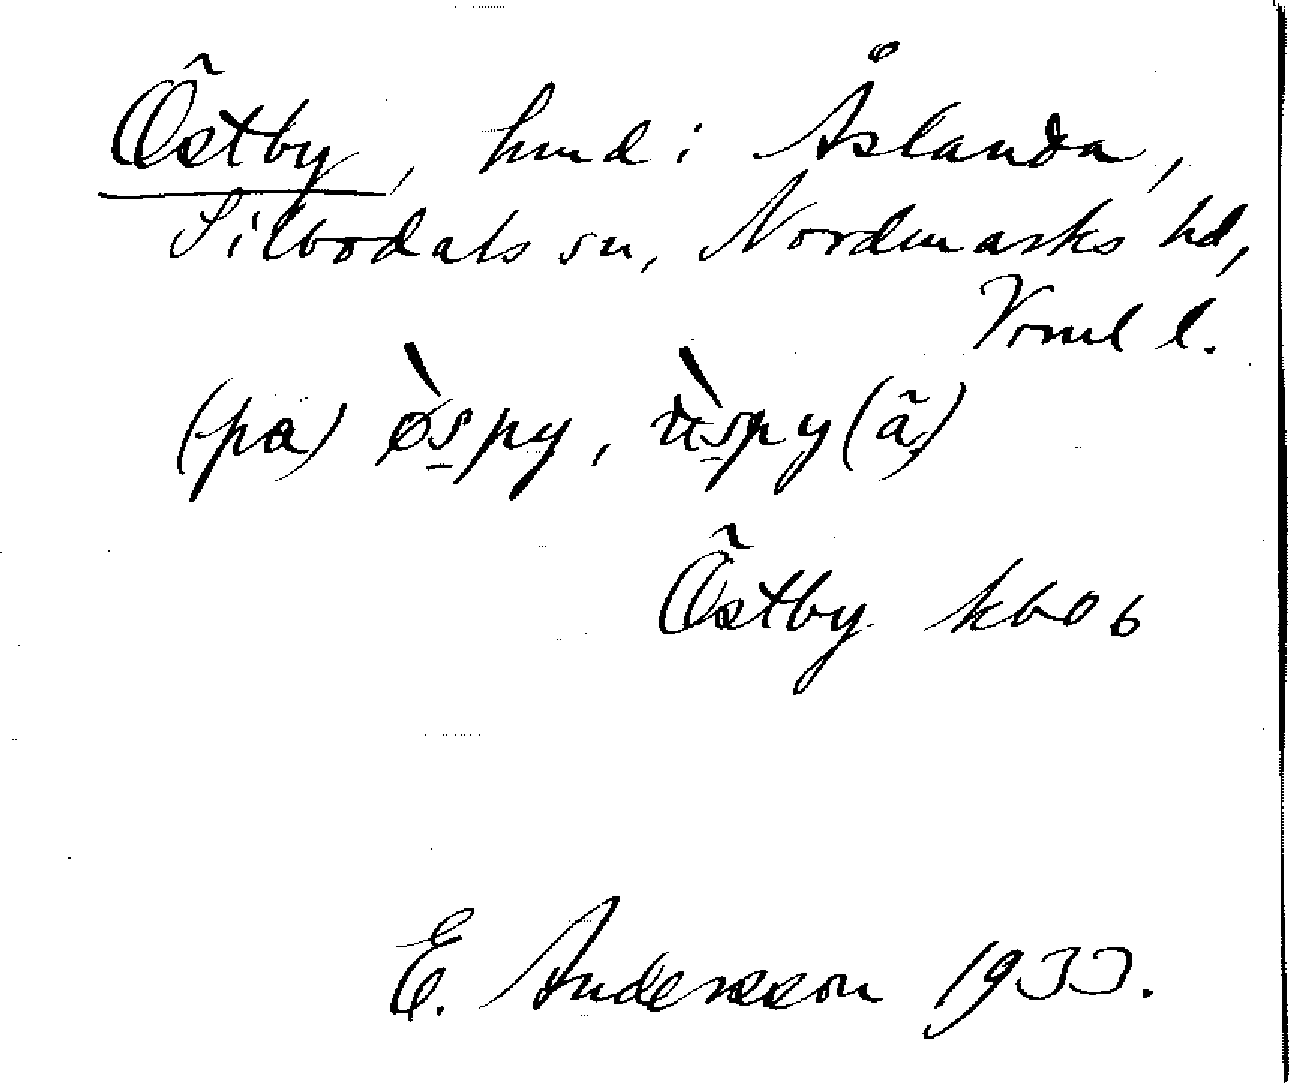 Östby, hmd i Åslanda,
Silbodals sn, Nordmarks hd,
Vrml l.
(på) òspy, ùspy (ã)
Östby kbo 6
E. Andersson 1933.